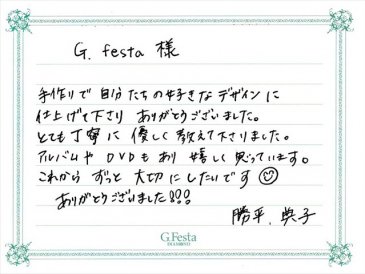 G. festa 様
手作りで自分たちの好きなデザインに
仕上げて下さりありがとうございました。
とても丁寧に優しく教えて下さりました。
アルバムやDVDもあり嬉しく思っています。
これからずっと大切にしたいです
ありがとうございました!!!
勝平、典子
G.Festa
DIAMOND